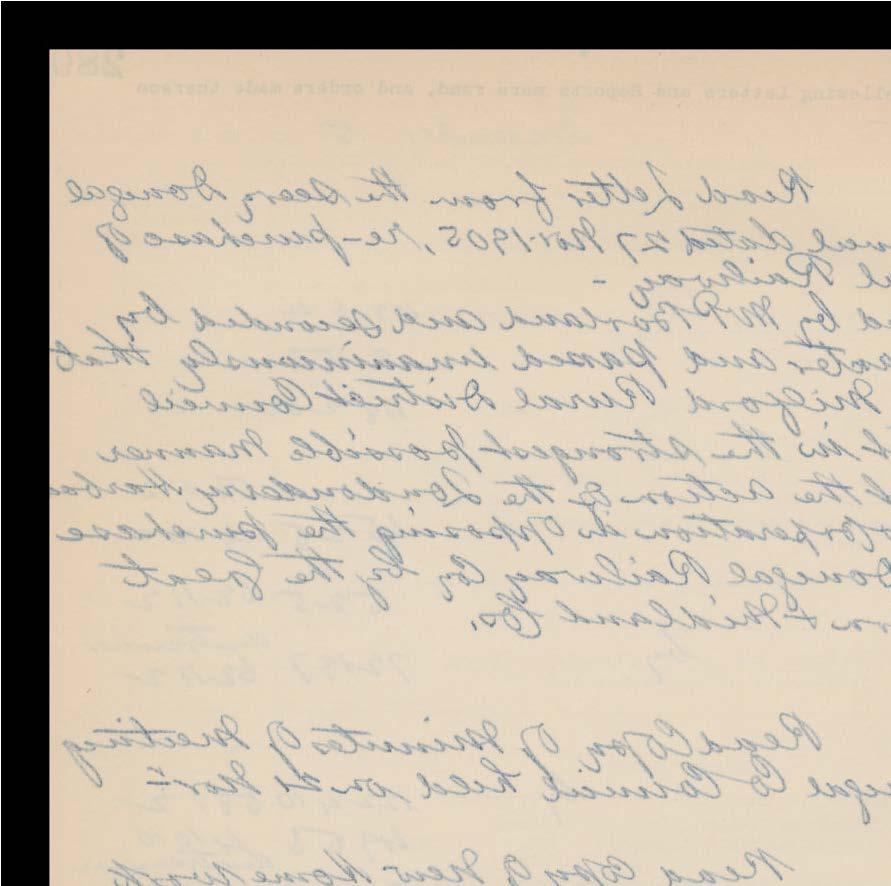 llowing Letters and Reports were read, and orders made thereon
Read Letter from the Secry Donegal
dated 27 Novr 1905, re-purchase of
l Railway -
d by Mr P Borland and seconded by
and passed unanimously that
Milford Rural District Council
t in the strongest possible manner
the action of the Londonderry Harbou
Corporation in opposing the purchase
Donegal Railway Co by the Great
rn & Midland Co.
Read Copy of Minutes of Meeting
egal Co Council held on Novr
Read Copy of New Home Work